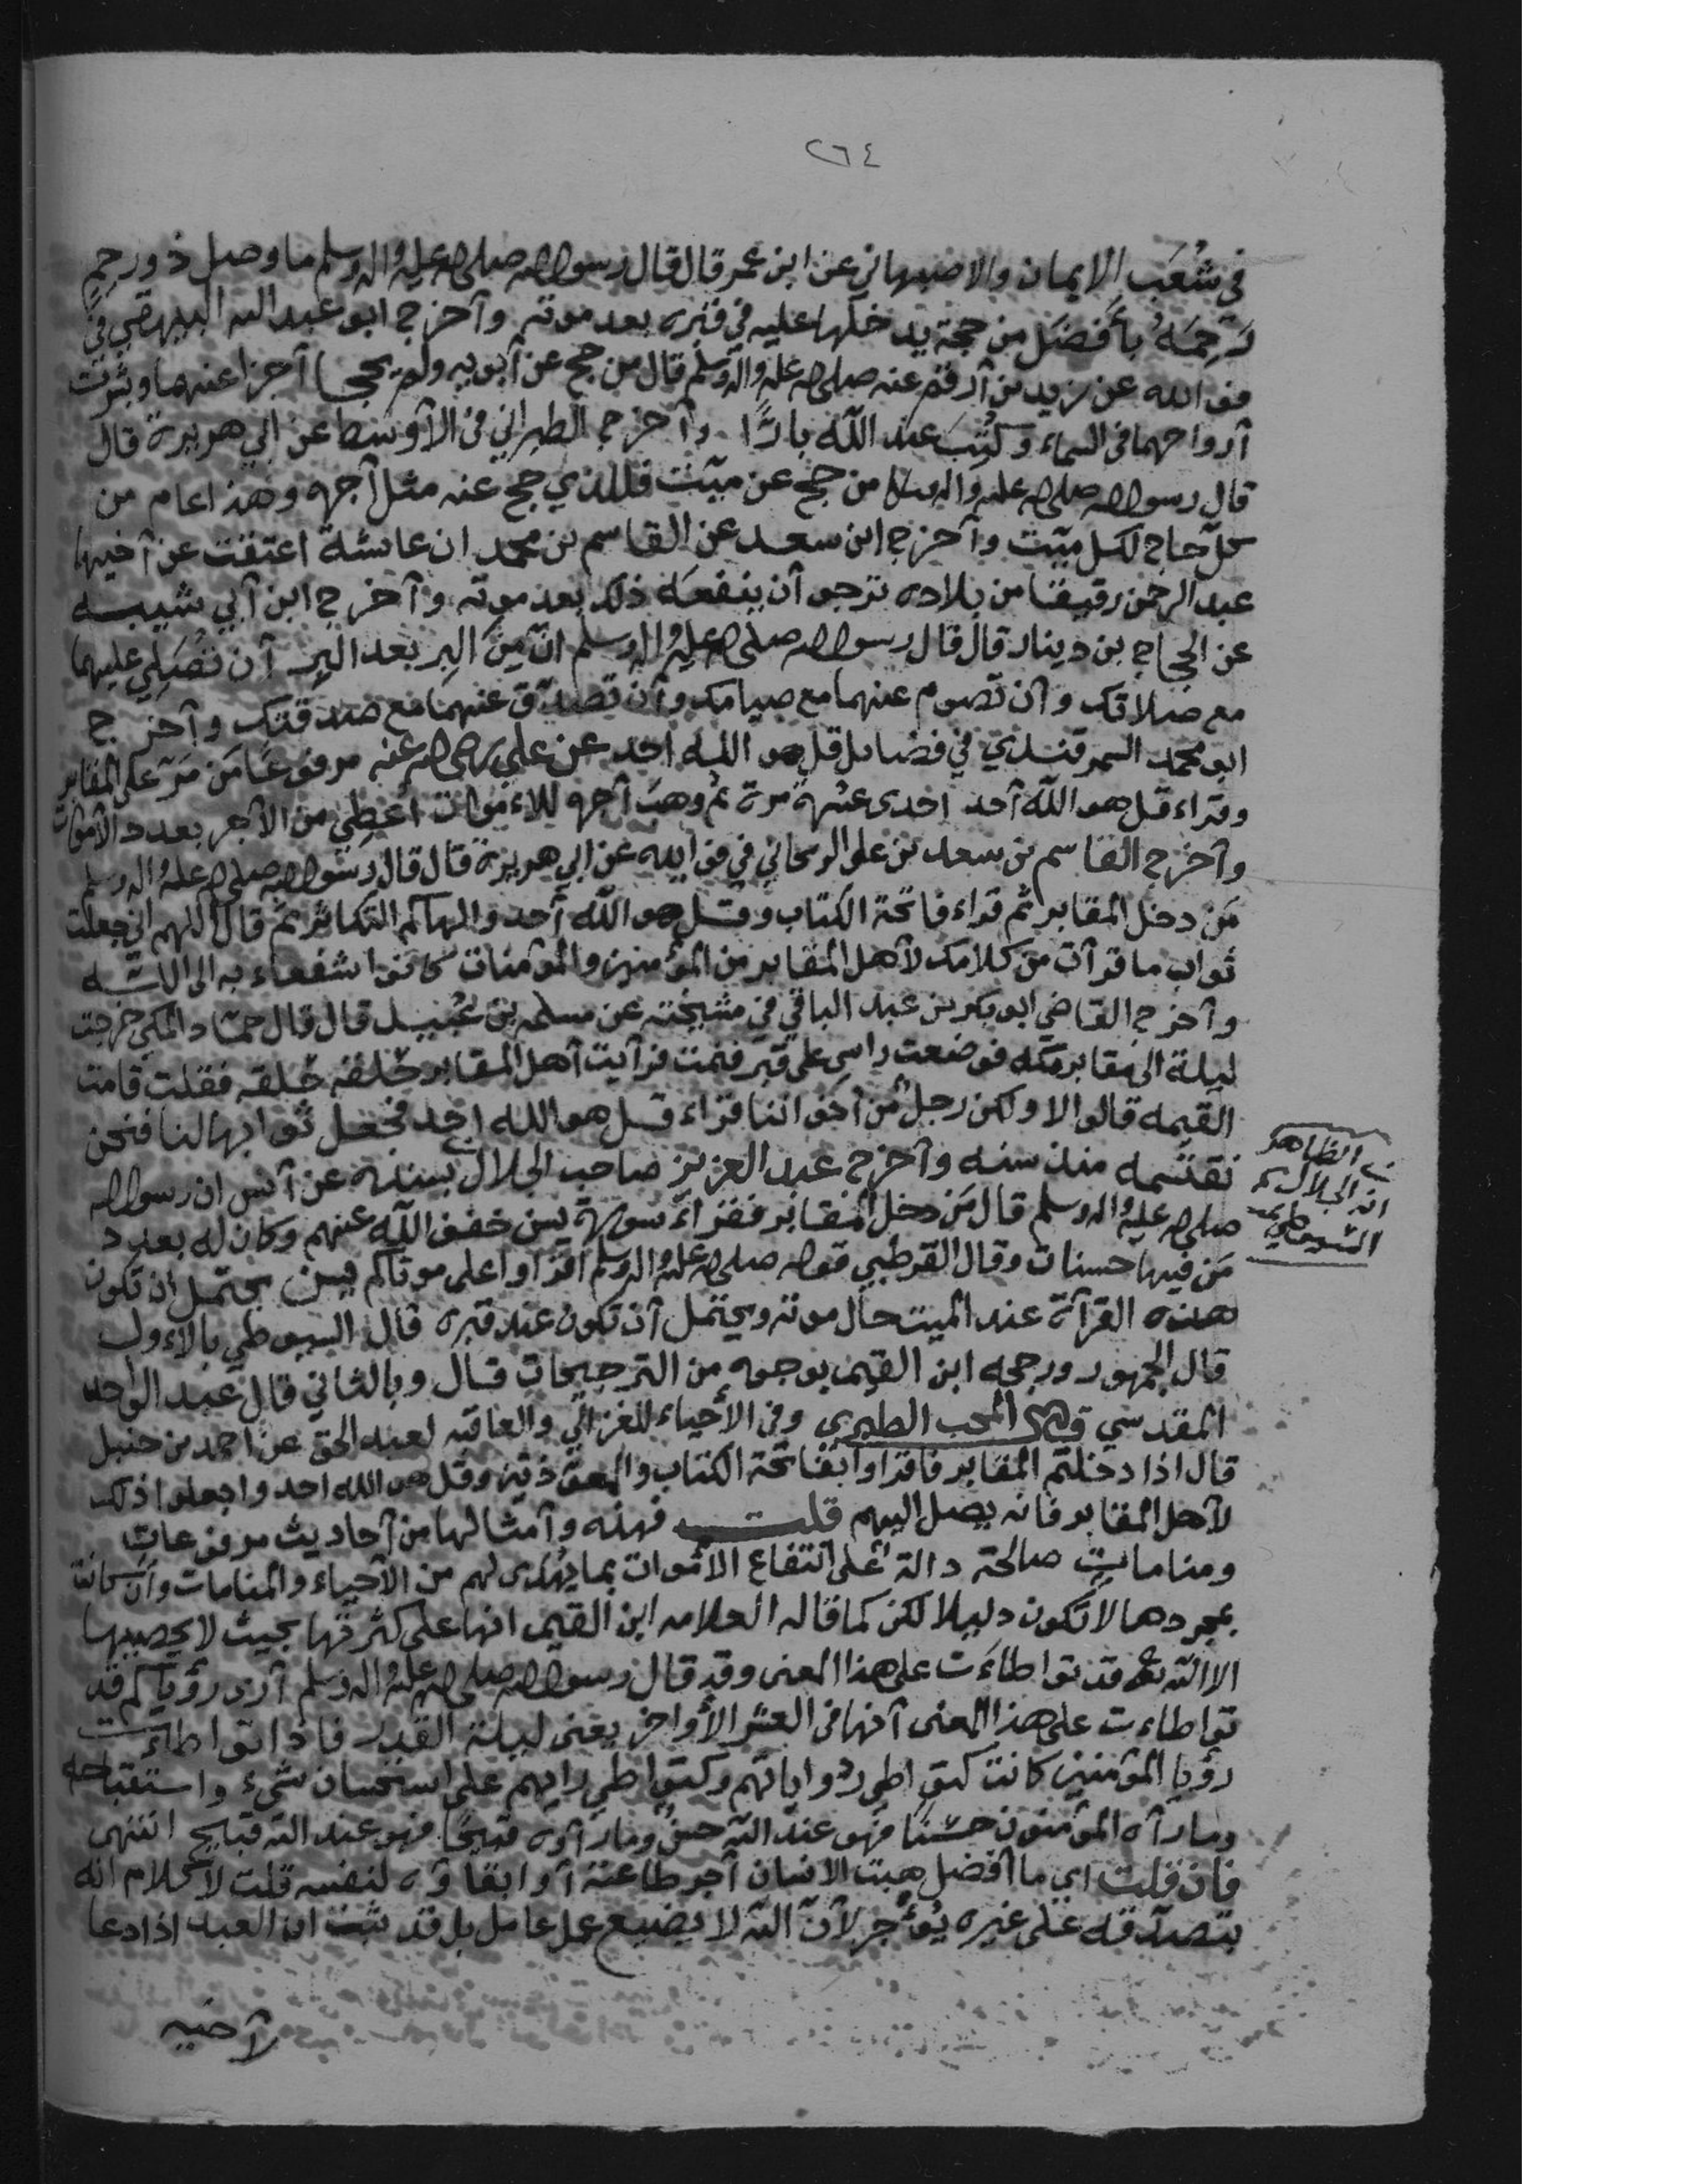 ٢٦٤
في شُعَب الايمان والاصبهاني عن ابن عمر قال قال رسول الله صلى الله عليه واله وسلم ما وصل ذو رحم
رَحِمَهُ بأفضَل من حجة يدخلها عليه في قبره بعد موته وآخرج ابو عبد الله البيهقي في
فوائده عن زيد بن آرقم عنه صلى الله عليه واله وسلم قال من حج عن آبويه ولم يحجا آجزا عنهما وبشرت
آرواحهما في السماء وكُتِبَ عند الله بارًّا وآخرج الطبراني في الآوسط عن ابي هريرة قال
قال رسول الله صلى الله عليه واله وسلم من حج عن ميّت فللذي حج عنه مثل آجره وهذا عام من
كل حاج لكل ميّت وآخرج ابن سعد عن القاسم بن محمد ان عائشة اعتقت عن آخيها
عبد الرحمن رقيقا من بلاده ترجو آن ينفعَه ذلك بعد موته وآخرج ابن آبي شيبه
عن الحجاج بن دينار قال قال رسول الله صلى الله عليه واله وسلم انّ مِن البِر بعد البِر آن تُصَلِي عليهما
مع صلاتك وآن تصوم عنهما مع صيامك وآن تصدّق عنهما مع صدقتك وآخرج
ابو محمد السمرقندي في فضائل قل هو الله احد عن علي رضي الله عنه مرفوعًا مَن مَرّ على المقابر
وقراء قل هو الله آحد احدى عشرة مرة ثم وهبَ آجره للاءموات اُعطِي من الآجر بعدد الآموات
وآخرج القاسم بن سعد بن علي الريحاني في فوايده عن ابي هريرة قال قال رسول الله صلى الله عليه واله وسلم
مَن دخل المقابر ثم قراء فاتحة الكتاب وقل هو الله آحد والهاكم التكاثر ثم قال اللهم اني جعلت
ثواب ما قرآت من كلامك لآهل المقابر من المؤمنين والمؤمنات كانوا شفعاء به الى الله
وآخرج القاضي ابو بكر بن عبد الباقي في مشيخته عن مسلمه بن عُبيد قال قال حماد المكي خرجت
ليلة الى مقابر مكه فوضعت راسي على قبر فنمت فرآيت آهل المقابر حَلقه حَلقه فقلت قامت
القيمه قالوا لا ولكن رجل من آخواننا قراء قل هو الله احد فجعل ثوابها لنا فنحن
نقتسمه منذ سنه وآخرج عبد العزيز صاحب الجلال بسنده عن آنس ان رسول الله
صلى الله عليه واله وسلم قال مَن دخل المقابر فقراء سورة يس خفف الله عنهم وكان له بعدد
مَن فيها حسنات وقال القرطبي قوله صلى الله عليه واله وسلم اقراوا على موتاكم يس يحتمل ان تكون
هذه القرآة عند الميت حال موته ويحتمل آن تكون عند قبره قال السيوطي بالاءول
قال الجمهور ورجحه ابن القيم بوجوه من الترجيحات قال وبالثاني قال عبد الواحد
المقدسي المحب الطبري وفي الأحياء للغزالي والعاقبه لعبد الحق عن احمد بن حنبل
قال اذا دخلتم المقابر فاقراوا بفاتحة الكتاب والمعوذتين وقل هو الله احد واجعلوا ذلك
لآهل المقابر فانه يصل اليهم قلت فهذه وآمثالها من آحاديث مرفوعات
ومنامات صالحة دالة على انتفاع الاموات بما يُهدى لهم من الآحياء والمنامات وان كانت
بمجردها لا تكون دليلا لكن كما قاله العلامه ابن القيم انها على كثرتها بحيث لا يحصيها
الا الله تع قد تواطاءَت على هذا المعنى وقد قال رسول الله صلى الله عليه واله وسلم آرى رؤياكم قد
تواطاءت على هذا المعنى آنها في العشر الأواخر يعنى ليلة القدر فاذا تواطاءت
رؤيا المؤمنين كانت كتواطي رواياتهم وكتواطي رايهم على استحسان شيء واستقباحه
وما رآه المؤمنون حسَنا فهو عند الله حسنٌ وما رآوه قبيحًا فهو عند الله قبايح انتهى
فان قلت اي ما افضل هبت الانسان آجر طاعته آو ابقاوه لنفسه قلت لا كلام انه
بتصدّقه على غيره يُؤجر لآنّ الله لا يضيع عمل عامل بل قد ثبت ان العبد اذا دعا
الظاهر
انه الجلال
السيوطي
لآخيه